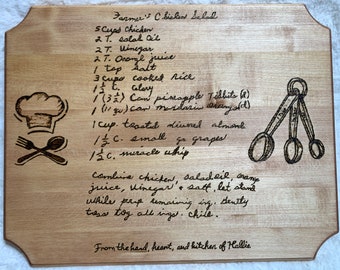 Farmer's Chicken Salad
5 Cups Chicken
2 T. Salad Oil
2 T. Vinegar
2 T. Orange juice
1 tsp Salt
3 cups cooked Rice
1 ½ C. Celery
1 (13 ½) Can pineapple Tidbits (d)
1 (11 oz) Can Mandarin oranges (d)
1 Cup toasted slivered almond
1 ½ C. small gr grapes
1 ½ C. miracle whip
Combine chicken, salad oil, orange
juice, Vinegar & salt, let stand
while prep remaining ing. Gently
toss tog all ings. Chill.
From the hand, heart, and kitchen of Hallie